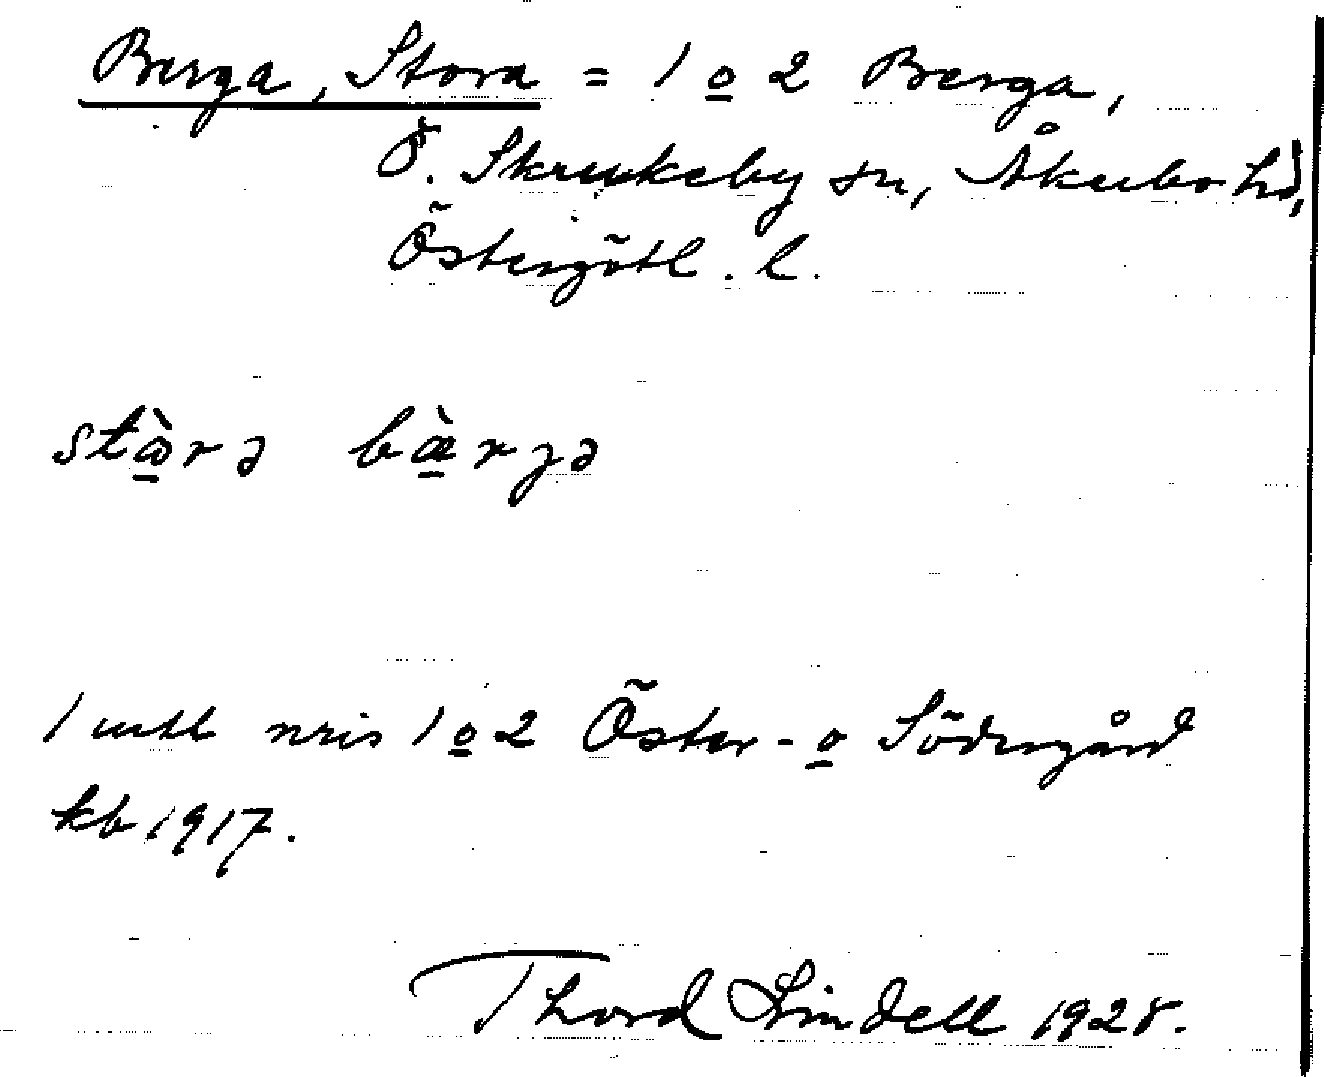 Berga, Stora = 1 o 2 Berga,
Ö. Skrukeby sn, Åkerbo hd,
Östergötl. l.
bæ̀rgə
1 mtl nris 1 o 2 Öster- o Södergård
kb 1917.
Thord Lindell 1928.